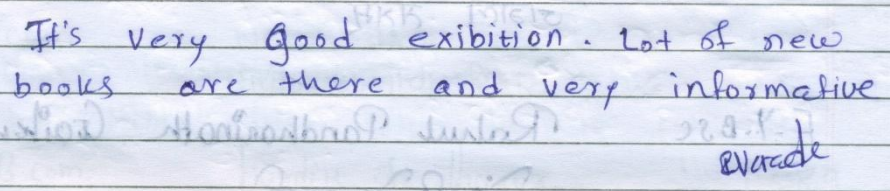 It's very good exibition. Lot of new
books are there and very informative